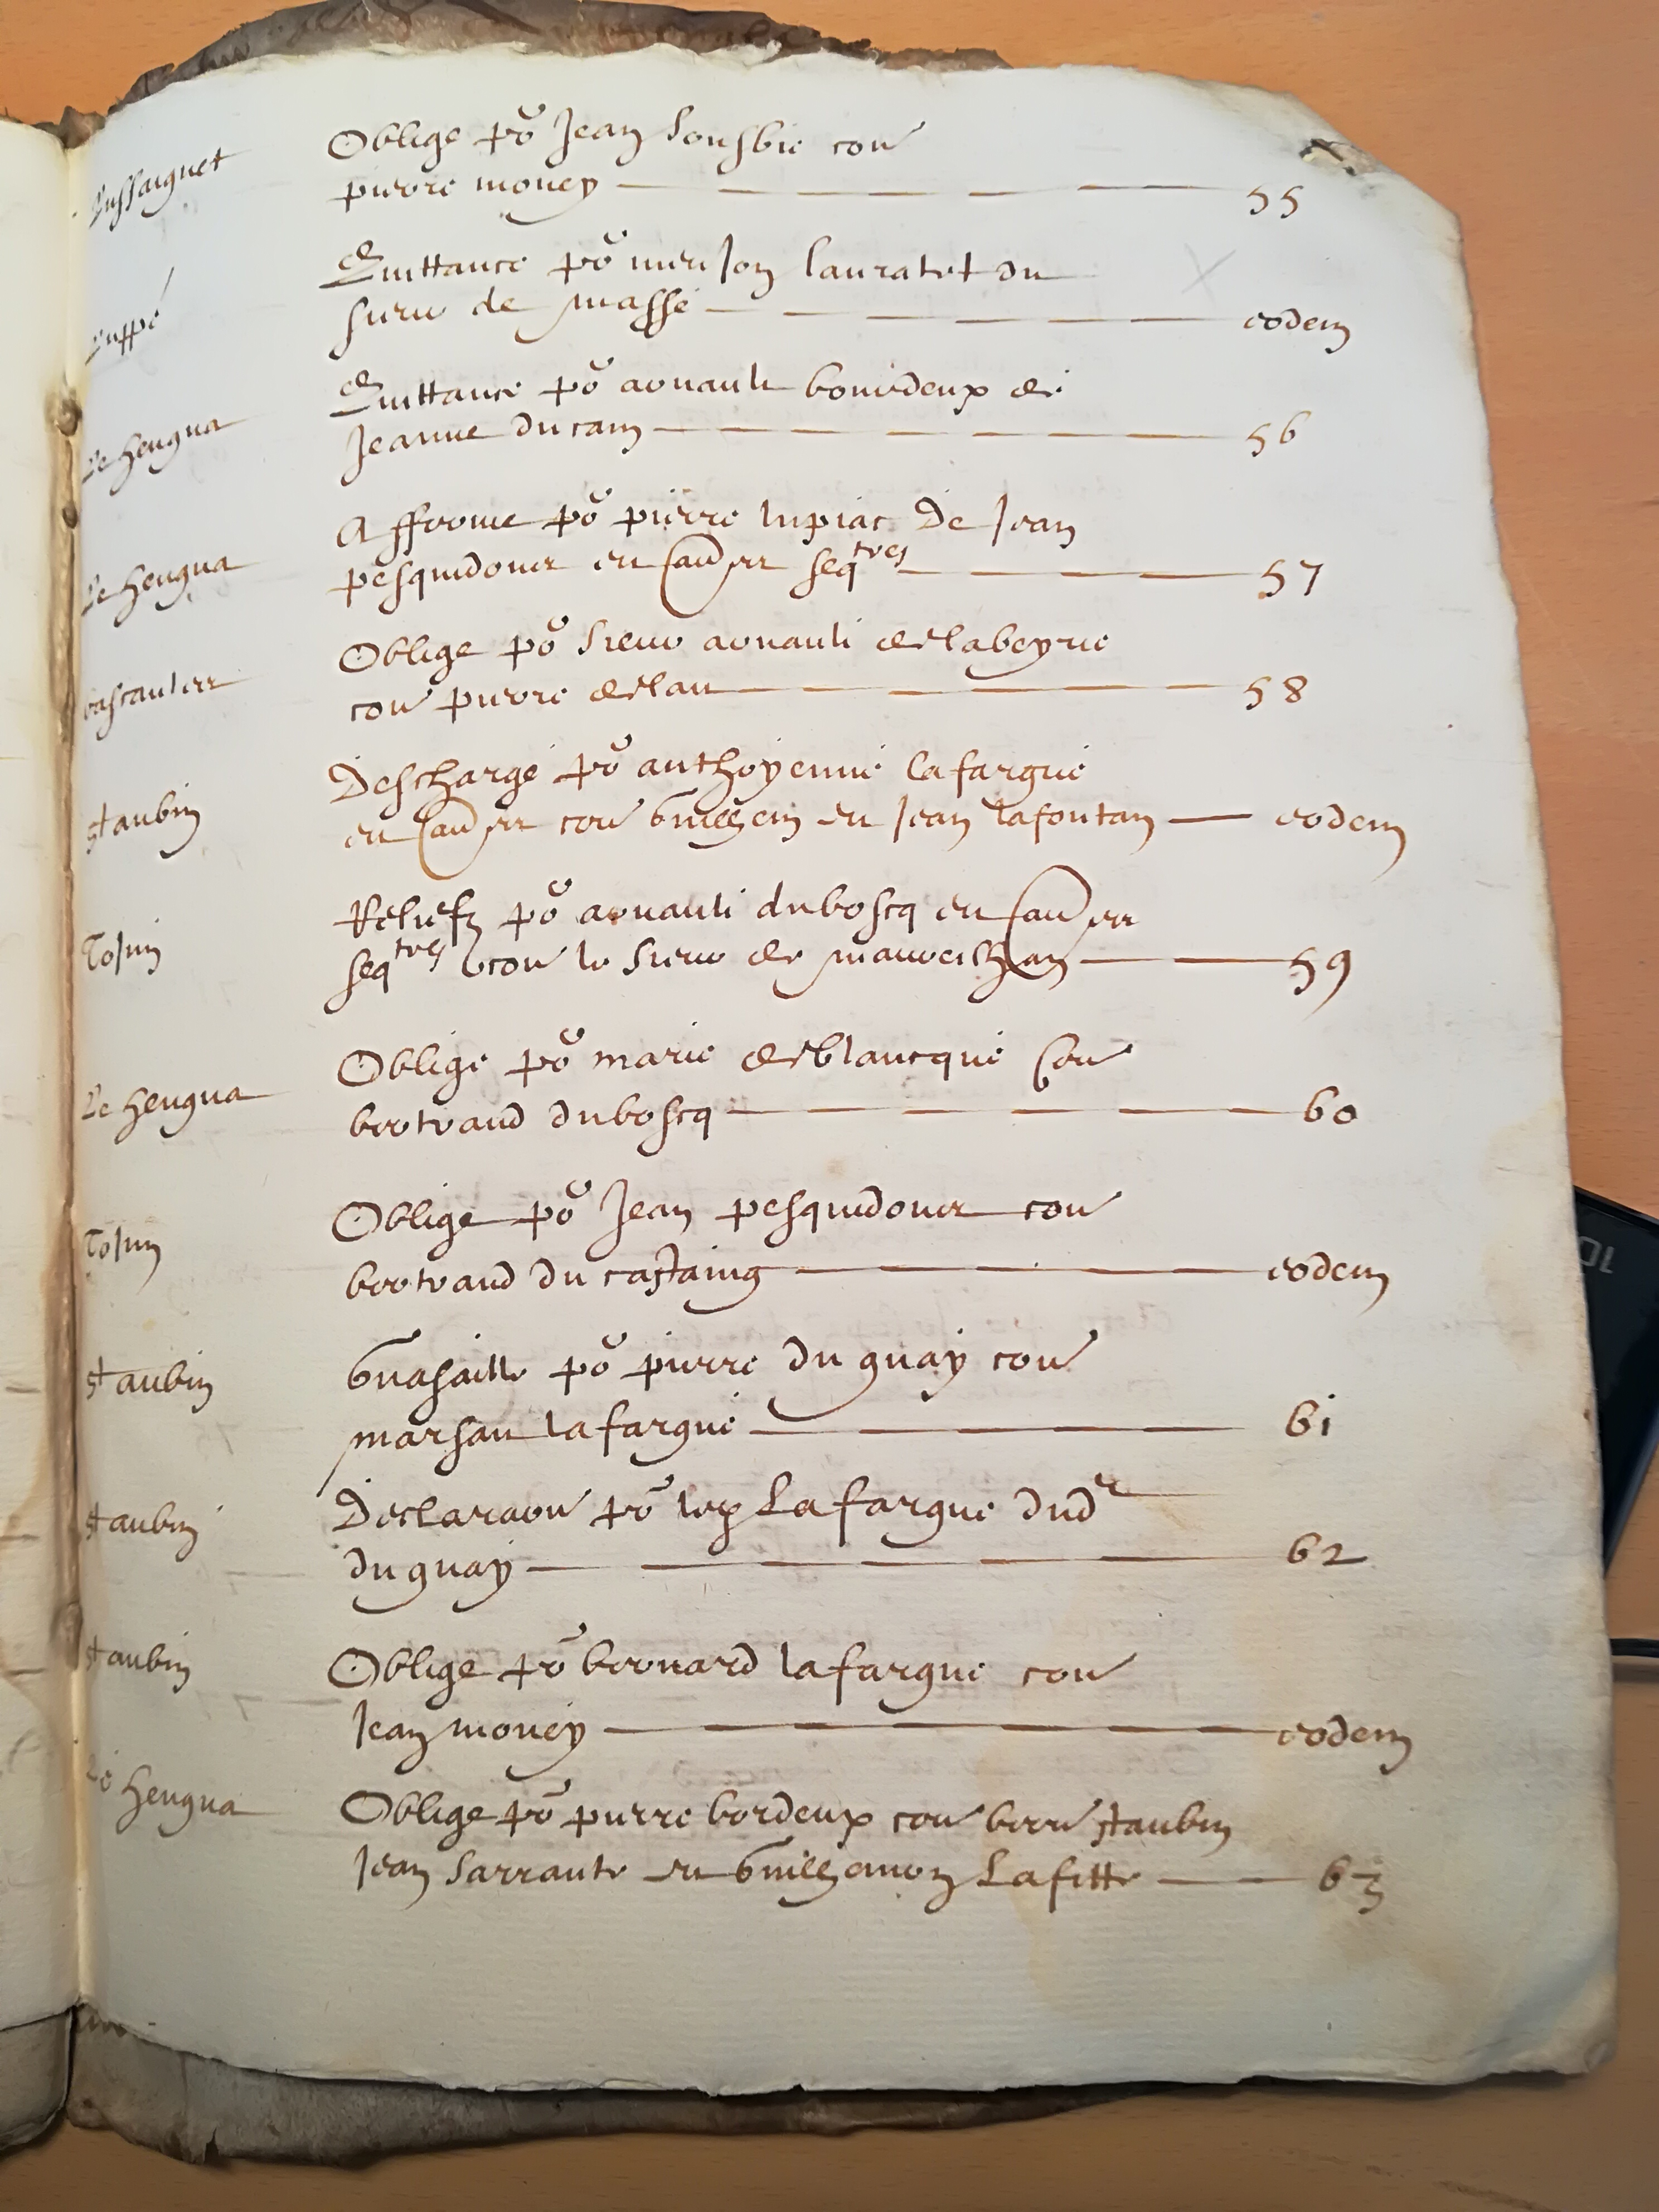 Lussaignet
Oblige po^r Jean Sousbie con^e
pierre mouey 55
Luppé
Quittance po^r meu Jon lauratet du
sieur de masse eodem
Le hengua
Quittance po^r arnault bourdeux de
Jeanne ducam 56
Le hengua
Afferme po^r pierre lupiac de Jean
pesquidoux et au^er seq^tres 57
bascaules
Oblige po^r sieur arnault de labeyrie
con^e pierre delau 58
St aubin
Descharge po^r anthoyenne lafargue
et au^er con^e Guilhem et Jean lafontan eodem
Toujun
Reliefz po^r arnault duboscq et au^er
seq^tres con^e le sieur de mauveishan 59
Le hengua
Oblige po^r marie deblancque Con^e
bertrand duboscq 60
Toujun
Oblige po^r Jean pesquidoux con^e
bertrand du castaing eodem
St aubin
Guasaille po^r pierre du guay con^e
marsau lafargue 61
St aubin
Declaraon po^r lop Lafargue dud^t
du guay 62
St aubin
Oblige po^r bernard lafargue con^e
Jean mouey eodem
Le hengua
Oblige po^r pierre bordeux con^e bern^e staubin
Jean Sarraute et Guilhamon Lafitte 63